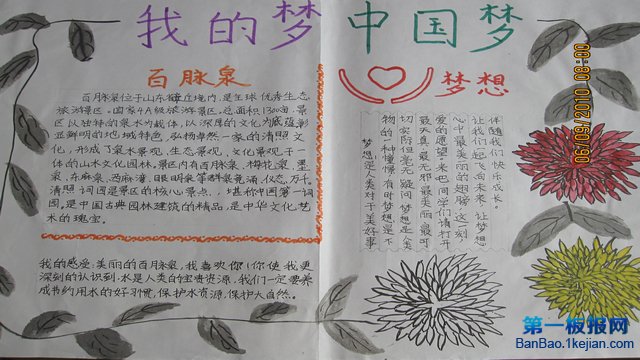 我的梦 中国梦
百脉泉
百月永泉位于山东章丘境内,是全球优秀生态
旅游景区。国家4A级旅游景区。总面积1300亩。景
区以独特的泉水为载体,以深厚的文化为底蕴,彰
显鲜明的地域特色,弘扬卓然一家的清照文
化,形成了泉水景观,生态景观,文化景观于一
体的山水文化园林。景区内有百脉泉,梅花泉,墨
泉,东麻泉,西麻湾,眼明泉等群泉竞涌,仪态万千。
清照词园是景区的核心景点,堪称中国第一词
园。是中国古典园林建筑的精品,是中华文化艺
术的瑰宝。
我的感受:美丽的百脉泉,我喜欢你!你使我更
深刻的认识到:水是人类的宝贵资源,我们一定要养
成节约用水的好习惯,保护水资源,保护大自然。
梦想
梦想是人类对于美好事
物的种憧憬有时梦想是不
切实际但毫无疑问梦想是人类
最天真最无邪最美丽最可
爱的愿望来吧同学们请打开
心中最美丽的翅膀这一刻
让我们起飞向未来让梦想
伴随我们快乐成长。
06/09/2010 08:00
第一板报网
BanBao.1kejian.com